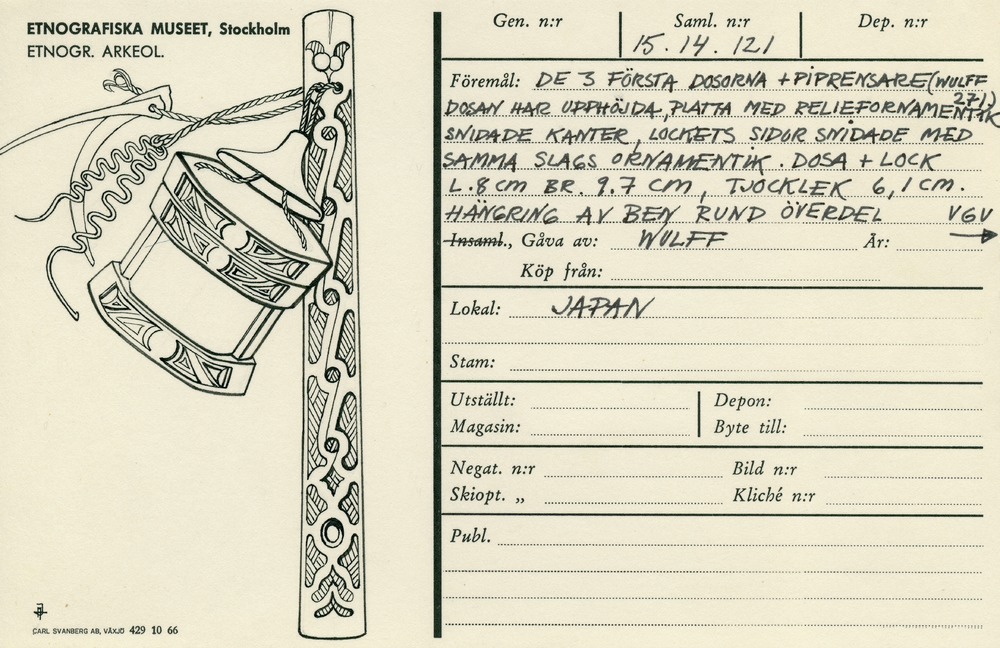 ETNOGRAFISKA MUSEET, Stockholm
ETNOGR. ARKEOL.
Gen. n:r
Saml. n:r
Dep. n:r
15.14.121
Föremål: DE 3 FÖRSTA DOSORNA + PIPRENSARE (WULFF
271)
DOSAN HAR UPPHÖJDA, PLATTA MED RELIEFORNAMENTIK
SNIDADE KANTER, LOCKETS SIDOR SNIDADE MED
SAMMA SLAGS ORNAMENTIK. DOSA + LOCK
L. 8 CM BR. 9.7 CM, TJOCKLEK 6,1 CM.
HÄNGRING AV BEN RUND ÖVERDEL VGV →
Insaml., Gåva av: WULFF År:
Köp från:
Lokal: JAPAN
Stam:
Utställt:
Depon:
Magasin:
Byte till:
Negat. n:r
Bild n:r
Skiopt. „
Kliché n:r
Publ.
CARL SVANBERG AB, VÄXJÖ 429 10 66